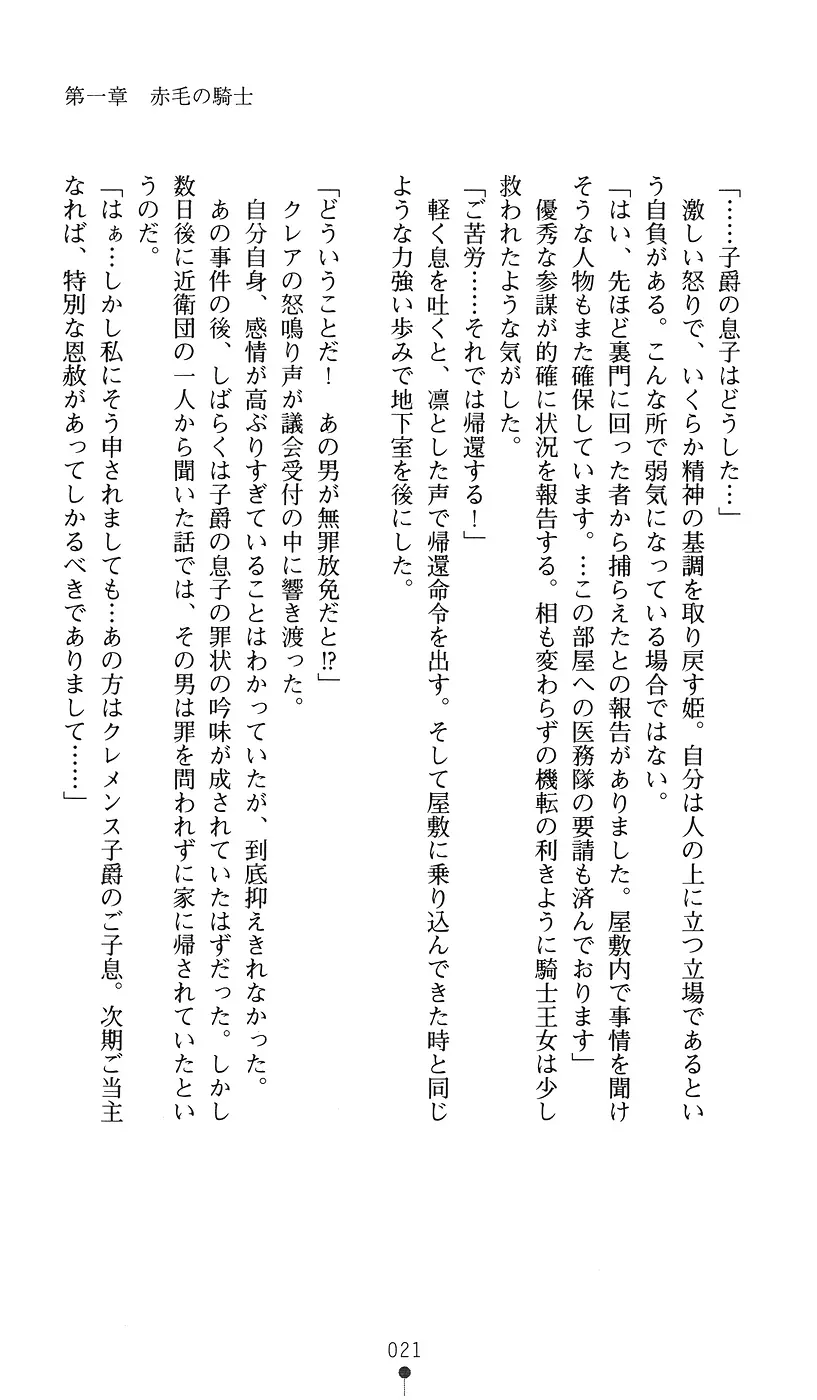 第一章　赤毛の騎士
「……子爵の息子はどうした…」
　激しい怒りで、いくらか精神の基調を取り戻す姫。自分は人の上に立つ立場であるとい
う自負がある。こんな所で弱気になっている場合ではない。
「はい、先ほど裏門に回った者から捕らえたとの報告がありました。屋敷内で事情を聞け
そうな人物もまた確保しています。…この部屋への医務隊の要請も済んでおります」
　優秀な参謀が的確に状況を報告する。相も変わらずの機転の利きように騎士王女は少し
救われたような気がした。
「ご苦労……それでは帰還する！」
　軽く息を吐くと、凛とした声で帰還命令を出す。そして屋敷に乗り込んできた時と同じ
ような力強い歩みで地下室を後にした。
「どういうことだ！　あの男が無罪放免だと!?」
　クレアの怒鳴り声が議会受付の中に響き渡った。
　自分自身、感情が高ぶりすぎていることはわかっていたが、到底抑えきれなかった。
　あの事件の後、しばらくは子爵の息子の罪状の吟味が成されていたはずだった。しかし
数日後に近衛団の一人から聞いた話では、その男は罪を問われずに家に帰されていたとい
うのだ。
「はぁ…しかし私にそう申されましても…あの方はクレメンス子爵のご子息。次期ご当主
なれば、特別な恩赦があってしかるべきでありまして……」
021